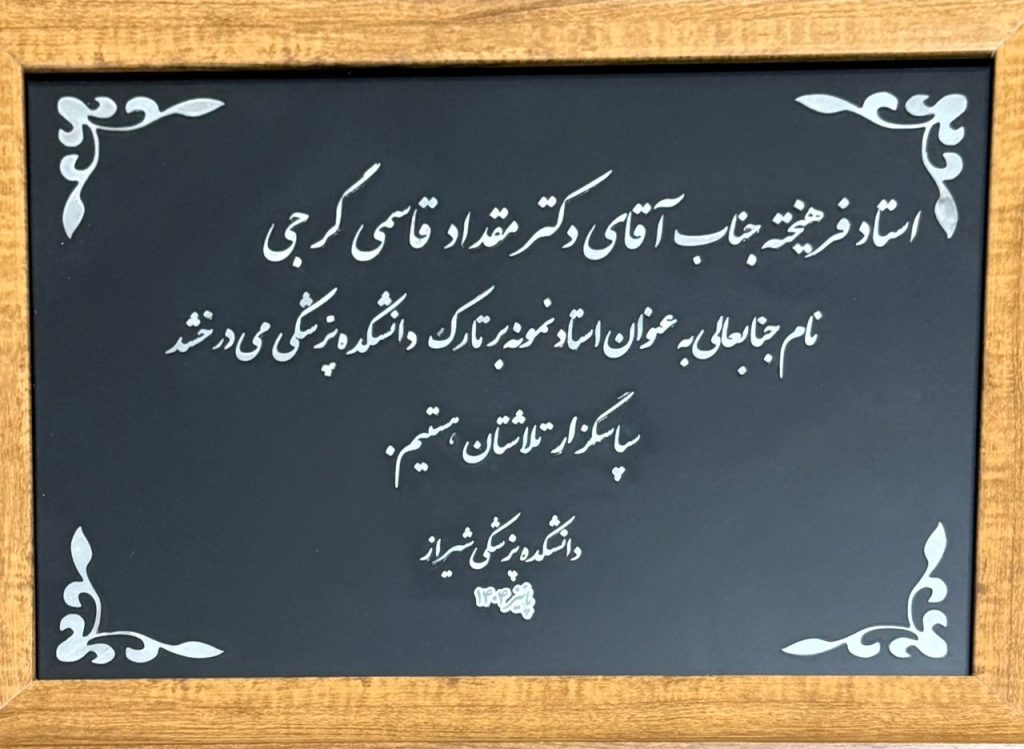 استاد فرهیخته جناب آقای دکتر مقداد قاسمی گرجی
نام جنابعالی به عنوان استاد نمونه بر تارک دانشکده پزشکی می درخشد
سپاسگزار تلاشتان هستیم.
دانشکده پزشکی شیراز
پاییز ۱۴۰۴